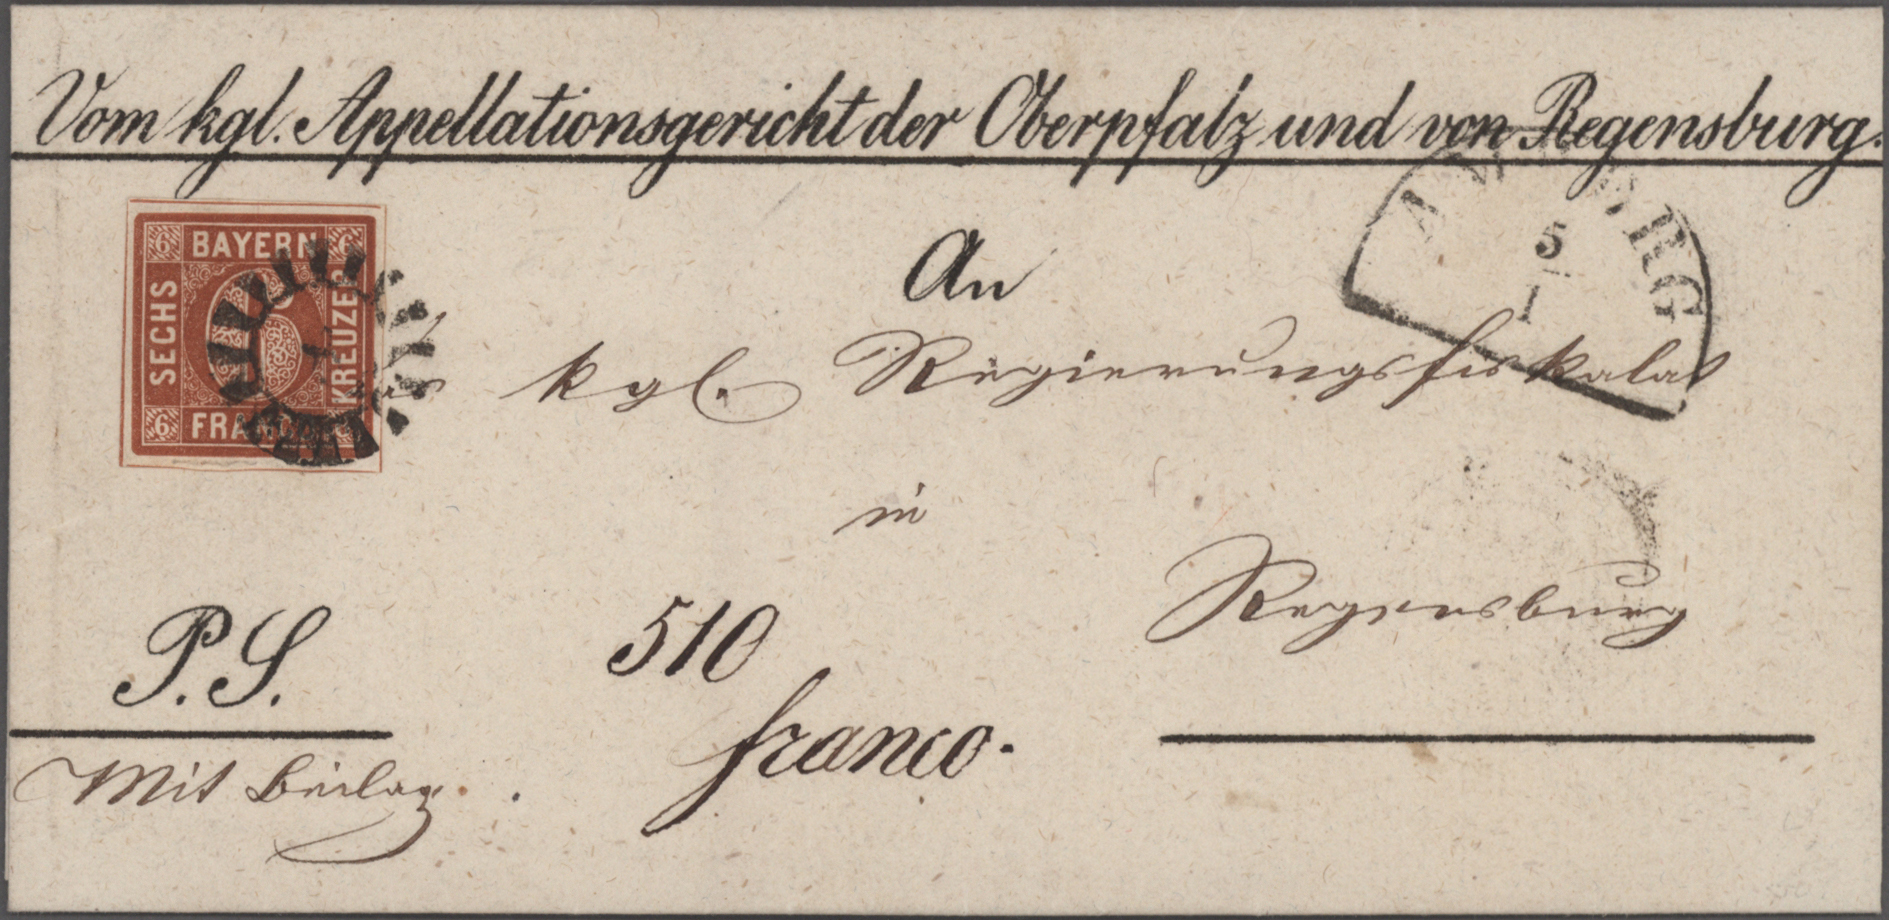 Vom kgl. Appellationsgericht der Oberpfalz und von Regensburg.
6 BAYERN 6
SECHS
KREUZER
6 FRANCO
AMBERG
5
1
An
das kgl. Regierungsfiskalat
in
Regensburg
P. S.
510
franco.
Mit Beilag.